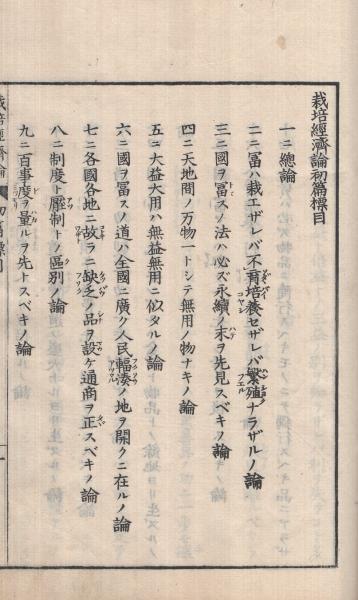 栽培經濟論初篇標目
一ニ總論
二ニ冨ハ栽エザレバ不育培養セザレバ繁殖ナラザルノ論
三ニ國ヲ冨スノ法ハ必ズ永續ノ末ヲ先見スベキノ論
四ニ天地間ノ万物一トシテ無用ノ物ナキノ論
五ニ大益大用ハ無益無用ニ似タルノ論
六ニ國ヲ冨スノ道ハ全國ニ廣ク人民輻湊ノ地ヲ開クニ在ルノ論
七ニ各國各地ニ故ラニ缺乏ノ品ヲ設ケ通商ヲ正スベキノ論
八ニ制度ト壓制トノ區別ノ論
九ニ百事度ヲ量ルヲ先トスベキノ論
栽培經濟論 初篇標目 一